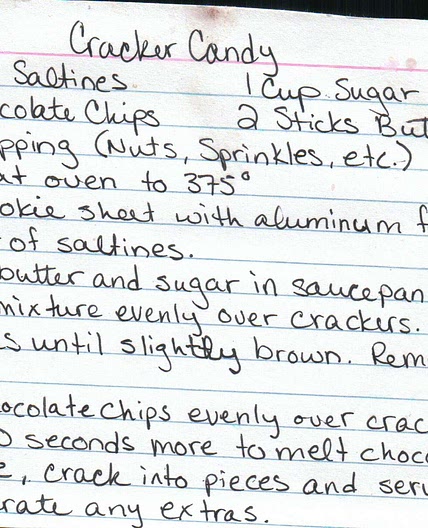 Cracker Candy
Saltines 1 Cup Sugar
colate Chips 2 Sticks But
pping (Nuts, Sprinkles, etc.)
at oven to 375°
okie sheet with aluminum f
of saltines.
butter and sugar in saucepan
mixture evenly over crackers.
s until slightly brown. Rem
ocolate chips evenly over crac
0 seconds more to melt choc
e, crack into pieces and serv
rate any extras.